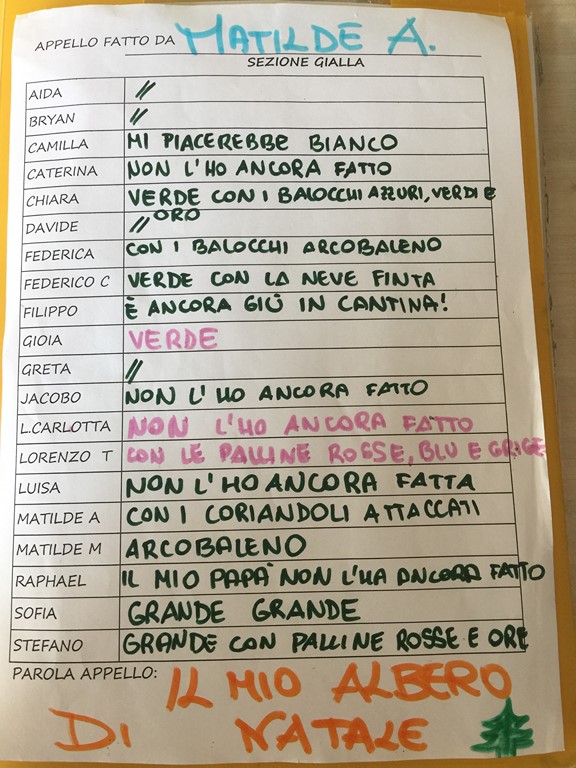 APPELLO FATTO DA MATILDE A.
SEZIONE GIALLA
AIDA //
BRYAN //
CAMILLA MI PIACEREBBE BIANCO
CATERINA NON L'HO ANCORA FATTO
CHIARA VERDE CON I BALOCCHI AZZURI, VERDI E
ORO
DAVIDE //
FEDERICA CON I BALOCCHI ARCOBALENO
FEDERICO C VERDE CON LA NEVE FINTA
FILIPPO È ANCORA GIÙ IN CANTINA!
GIOIA VERDE
GRETA //
JACOBO NON L'HO ANCORA FATTO
L.CARLOTTA NON L'HO ANCORA FATTO
LORENZO T CON LE PALLINE ROSSE, BLU E GRIGE
LUISA NON L'HO ANCORA FATTA
MATILDE A CON I CORIANDOLI ATTACCATI
MATILDE M ARCOBALENO
RAPHAEL IL MIO PAPÀ NON L'HA ANCORA FATTO
SOFIA GRANDE GRANDE
STEFANO GRANDE CON PALLINE ROSSE E ORE
PAROLA APPELLO: IL MIO ALBERO
DI NATALE